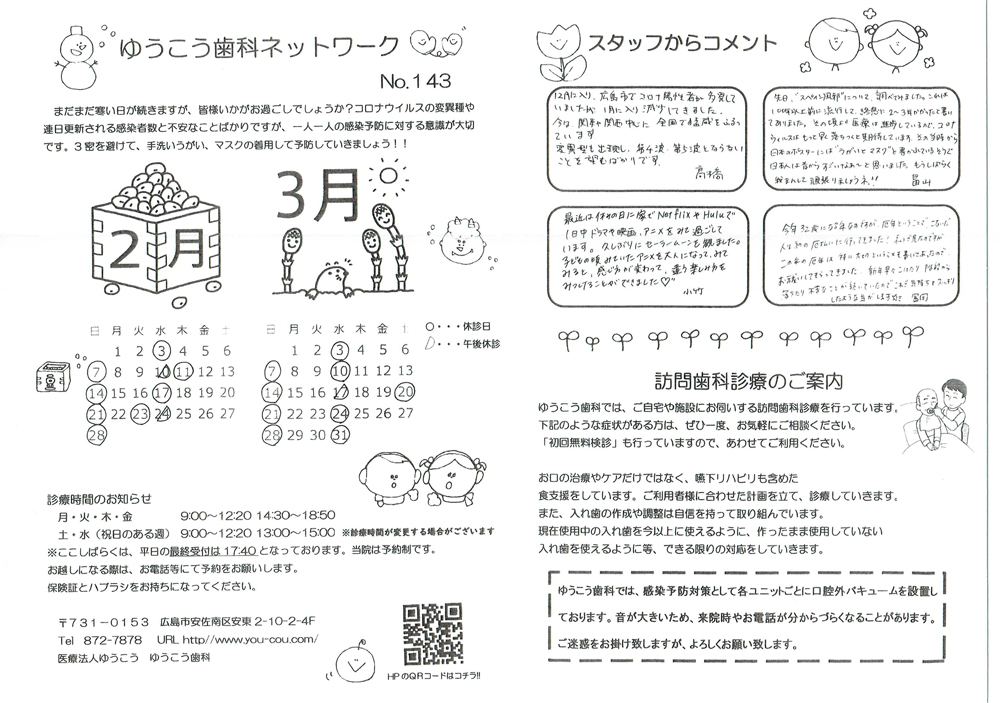 ゆうこう歯科ネットワーク
No.143
まだまだ寒い日が続きますが、皆様いかがお過ごしでしょうか?コロナウイルスの変異種や
連日更新される感染者数と不安なことばかりですが、一人一人の感染予防に対する意識が大切
です。3密を避けて、手洗いうがい、マスクの着用して予防していきましょう!!
2月
3月
日 月 火 水 木 金 土
1 2 3 4 5 6
7 8 9 10 11 12 13
14 15 16 17 18 19 20
21 22 23 24 25 26 27
28
日 月 火 水 木 金 土
1 2 3 4 5 6
7 8 9 10 11 12 13
14 15 16 17 18 19 20
21 22 23 24 25 26 27
28 29 30 31
○・・・休診日
・・・午後休診
診療時間のお知らせ
月・火・木・金 9:00~12:20 14:30~18:50
土・水(祝日のある週) 9:00~12:20 13:00~15:00 ※診療時間が変更する場合がございます
※ここしばらくは、平日の最終受付は 17:40 となっております。当院は予約制です。
お越しになる際は、お電話等にて予約をお願いします。
保険証とハブラシをお持ちになってください。
〒731-0153 広島市安佐南区安東 2-10-2-4F
Tel 872-7878 URL http//www.you-cou.com/
医療法人ゆうこう ゆうこう歯科
HPのQRコードはコチラ!!
スタッフからコメント
12月に入り、広島市でコロナ陽性者が多発して
いましたが、1月に入り減少してきました。
今は関東や関西中心に全国で猛威をふるっ
ています。
変異型も出現し、第4波、第5波とならない
ことを望むばかりです。
高橋
先日、"スペイン風邪"について、調べてみました。これは
100年以上前に流行して、終息に2~3年かかったと書い
てありました。その頃より医療は進歩しているので、コロナ
ウィルスはもっと早く落ちつくと期待しています。その当時から
日本のポスターには"うがいとマスク"と書かれているそうで
日本人は昔からすごいナぁ~と思いました。もうしばらく
我まんして頑張りましょうネ!!
畠山
最近は休みの日に家でNetflixやHuluで
1日中ドラマや映画、アニメをみて過ごして
います。久しぶりにセーラームーンを観ました。
子どもの頃みていたアニメを大人になって、みて
みると、感じ方が変わって、違う楽しみ方を
みつけることができました♡
小竹
今年32歳になる年なのですが、厄年ということで、
お祓いしてもらってきました。
訪問歯科診療のご案内
ゆうこう歯科では、ご自宅や施設にお伺いする訪問歯科診療を行っています。
下記のような症状がある方は、ぜひ一度、お気軽にご相談ください。
「初回無料検診」も行っていますので、あわせてご利用ください。
お口の治療やケアだけではなく、嚥下リハビリも含めた
食支援をしています。ご利用者様に合わせた計画を立て、診療していきます。
また、入れ歯の作成や調整は自信を持って取り組んでいます。
現在使用中の入れ歯を今以上に使えるように、作ったまま使用していない
入れ歯を使えるように等、できる限りの対応をしていきます。
ゆうこう歯科では、感染予防対策として各ユニットごとに口腔外バキュームを設置し
ております。音が大きいため、来院時やお電話が分からづらくなることがあります。
ご迷惑をお掛け致しますが、よろしくお願い致します。